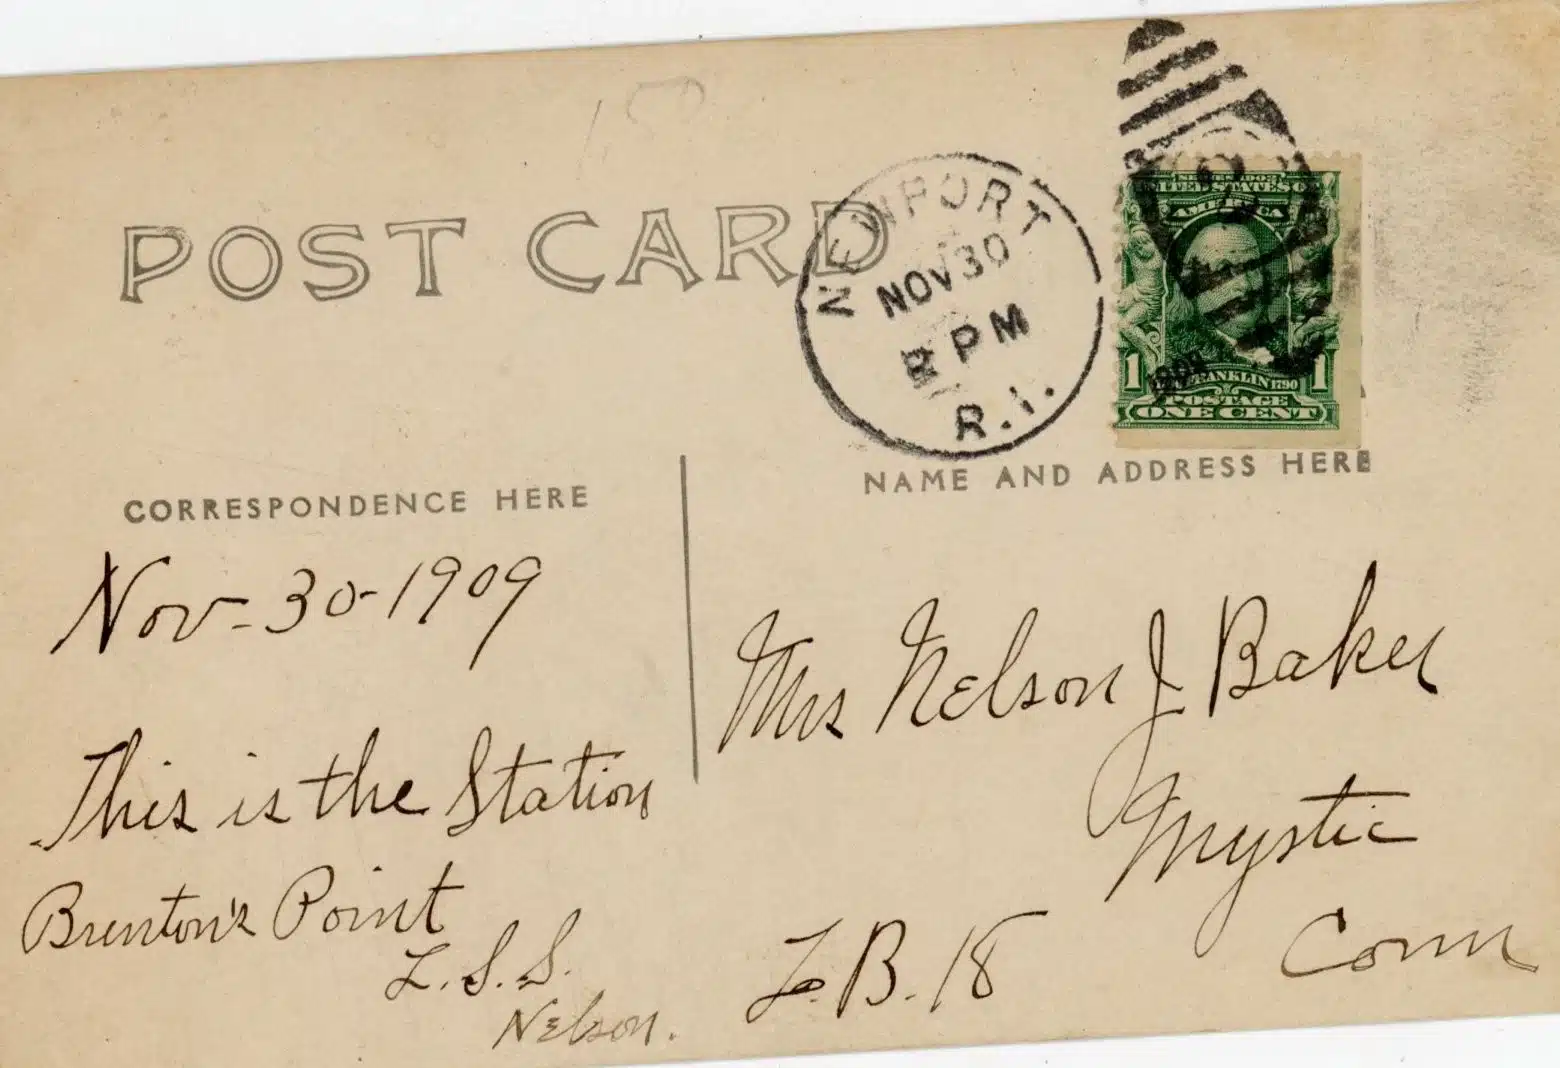 POST CARD
NEWPORT
NOV 30
PM
R.I.
SERIES 1902
UNITED STATES OF
AMERICA
1909
FRANKLIN 1790
1 POSTAGE 1
ONE CENT
CORRESPONDENCE HERE
NAME AND ADDRESS HERE
Nov-30-1909
This is the Station
Brenton's Point
L.S.S.
Nelson.
Mrs Nelson J Baker
Mystic
Conn
B. 18